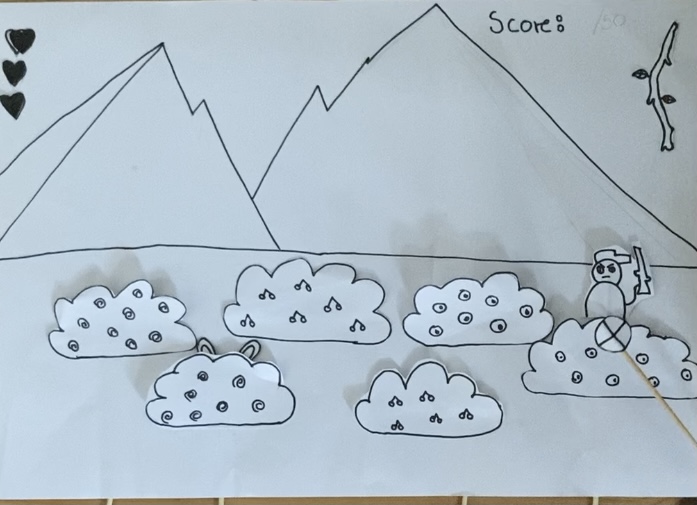 Score: /50